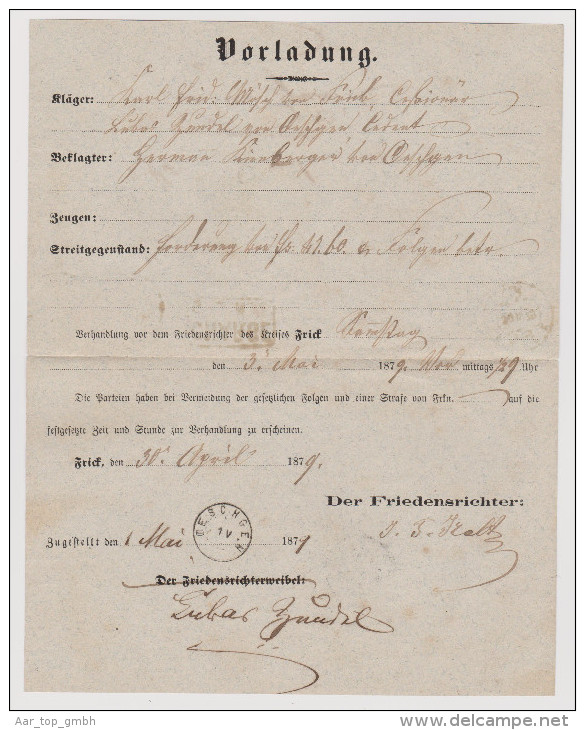 Vorladung.
Kläger: Karl Frid. Mösch von Frick, Cessionär
Lukas Zundel von Oeschgen Cedent
Beklagter: Herman Kienberger von Oeschgen
Zeugen:
Streitgegenstand: Forderung von Fr. 41.60. & Folgen betr.
Verhandlung vor dem Friedensrichter des Kreises Frick Samstag
den 3. Mai 1879. Vor mittags ½9 Uhr
Die Parteien haben bei Vermeidung der gesetzlichen Folgen und einer Strafe von Frkn. auf die
festgesetzte Zeit und Stunde zur Verhandlung zu erscheinen.
Frick, den 30. April 1879.
Der Friedensrichter:
OESCHGEN
1 V
Zugestellt den 1 Mai 1879
Der Friedensrichterweibel:
Lukas Zundel
Aar_top_gmbh
delcampe.net